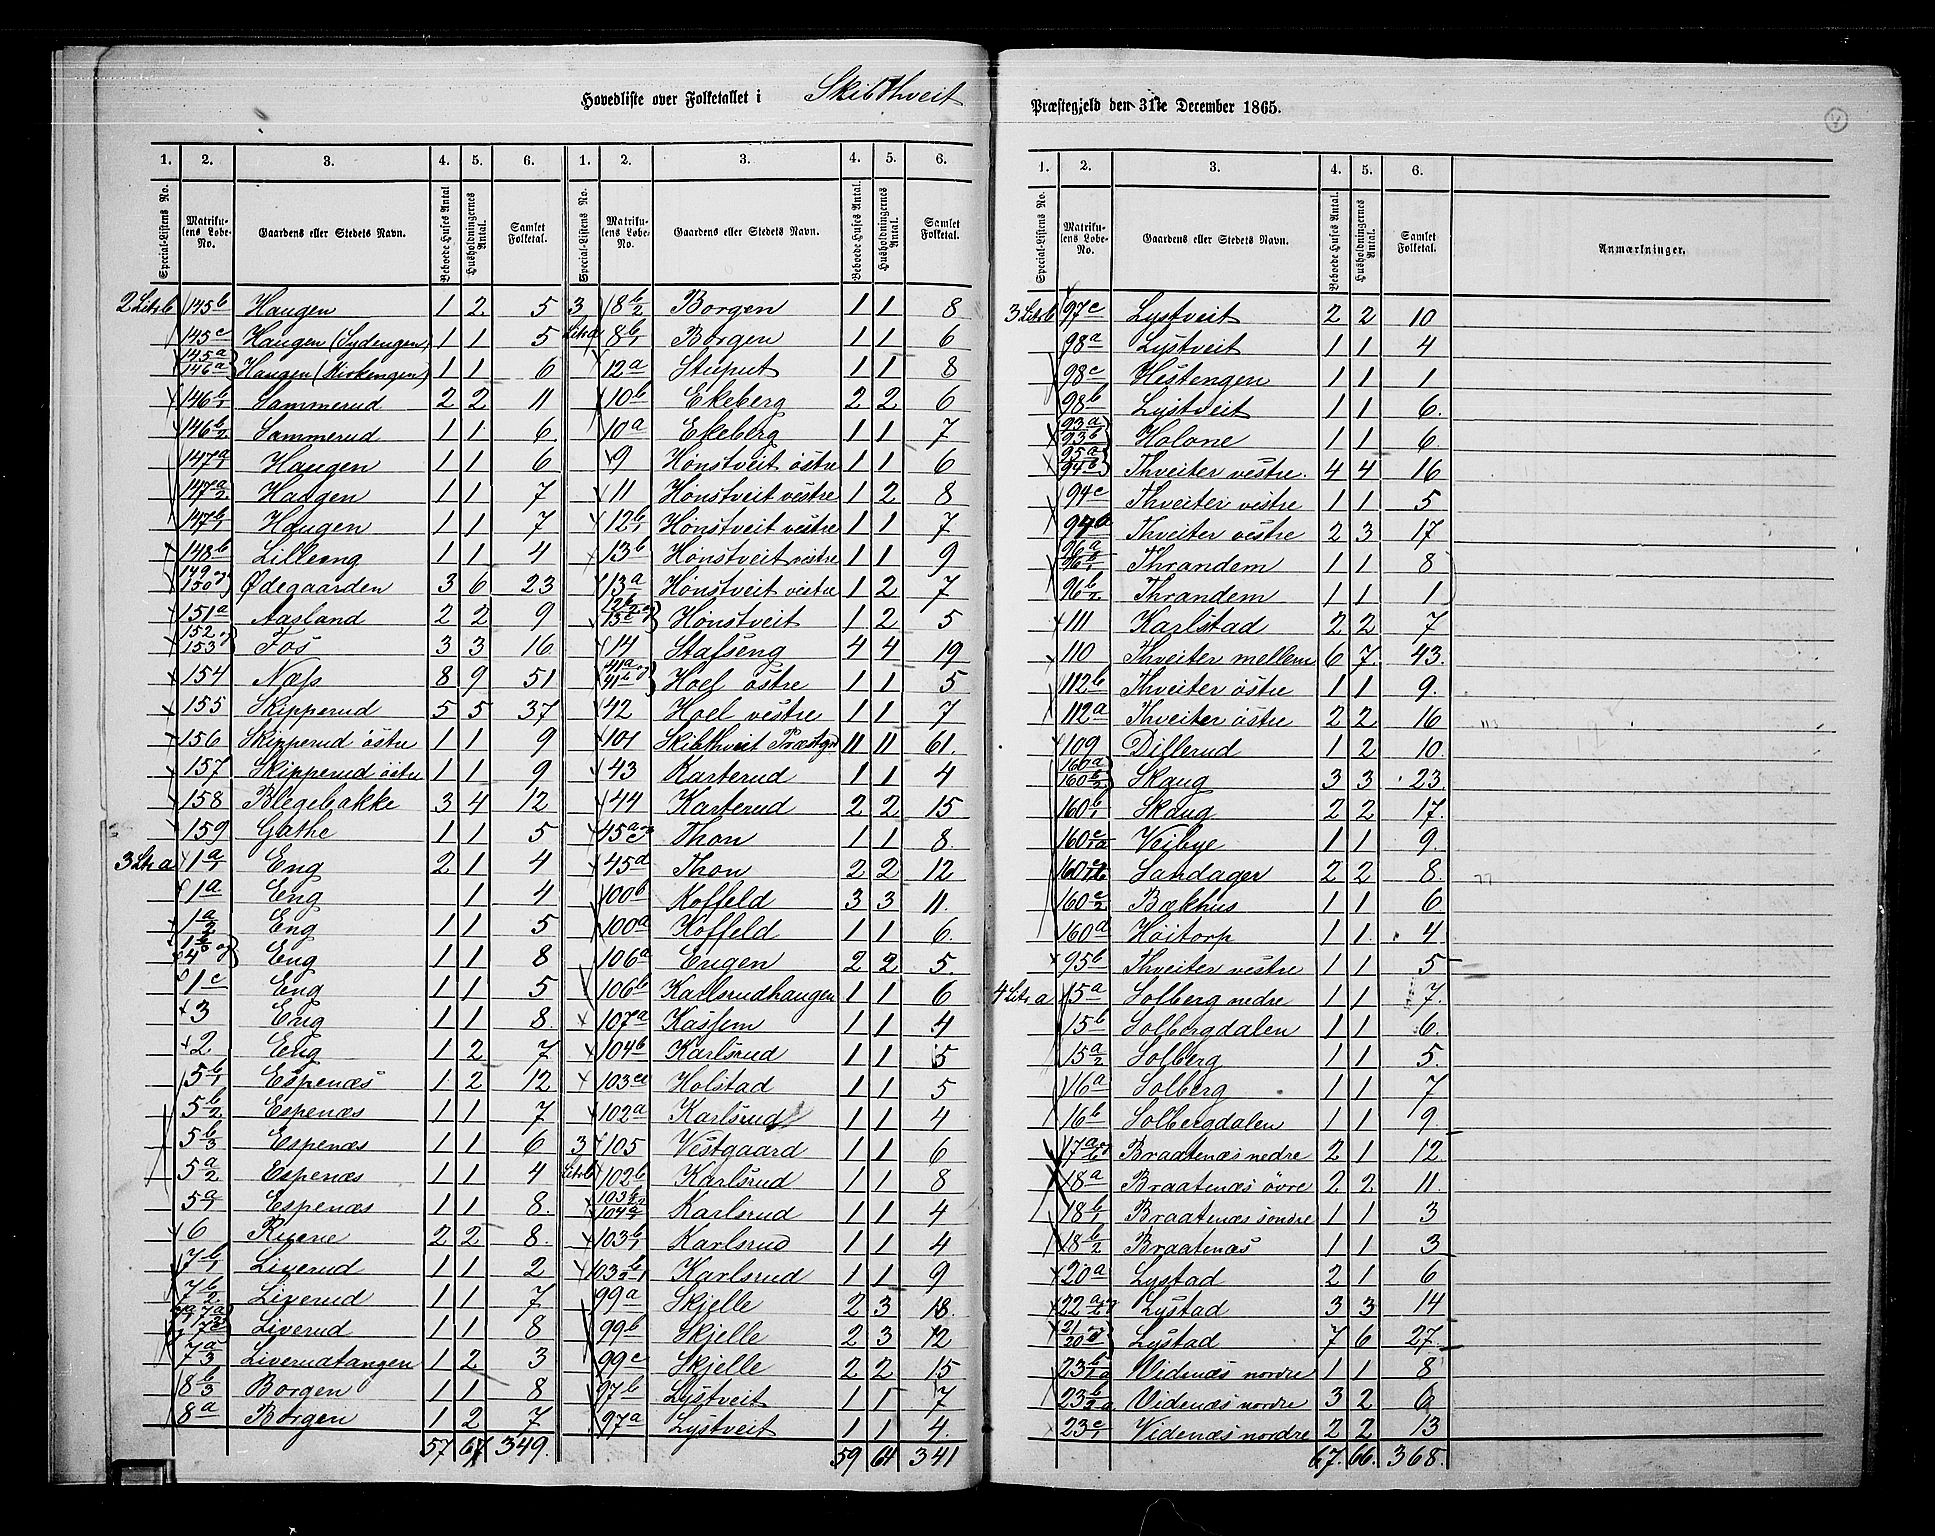 Hovedliste over Folketallet i Skibthveit
Præstegjeld den 31te December 1865.
1. 2. 3. 4. 5. 6. 1. 2. 3. 4. 5. 6.
Special-Listens No. Matrikulens Løbe-No. Gaardens eller Stedets Navn. Beboede Huses Antal Husholdningernes Antal. Samlet Folketal. Special-Listens No. Matrikulens Løbe-No. Gaardens eller Stedets Navn. Beboede Huses Antal. Husholdningernes Antal. Samlet Folketal.
2 Litr b 145b Haugen 1 2 5
145c Haugen (Sydengen) 1 1 5
145a 146a Haugen (Kirkengen) 1 1 6
146b/1 Sammerud 2 2 11
146b/2 Sammerud 1 1 6
147a/1 Haugen 1 1 6
147a/2 Haugen 1 1 7
147b/1 Haugen 1 1 7
148b Lilleeng 1 1 4
149 og 150 Ødegaarden 3 6 23
151a Aasland 2 2 9
152 og 153 Fos 3 3 16
154 Næs 8 9 51
155 Skipperud 5 5 37
156 Skipperud östre 1 1 9
157 Skipperud östre 1 1 9
158 Blegebakke 3 4 12
159 Gathe 1 1 5
3 Litr a 1a/1 Eng 2 1 4
1a Eng 1 4
1a/2 Eng 1 1 5
4 Eng 1 1 8
1c Eng 1 1 5
3 Eng 1 1 8
2 Eng 1 2 7
5b/1 Espenæs 1 2 12
5b/2 Espenæs 1 1 7
5b/3 Espenæs 1 1 6
5a/2 Espenæs 1 1 4
5a/1 Espenæs 1 1 8
6 Ruene 2 2 8
7b/1 Liverud 1 1 2
7b/2 Liverud 1 1 7
Liverud 1 1 8
7a/3 Liverudtangen 1 2 3
8b/3 Borgen 1 1 8
8a Borgen 1 2 7
57 67 349
3 Litr a 8b/2 Borgen 1 1 8
8b/1 Borgen 1 1 6
12a Stuput 1 1 8
10b Ekeberg 2 2 6
10a Ekeberg 1 1 7
9 Hönstveit östre 1 1 6
11 Hönstveit vestre 1 2 8
12b/1 Hönstveit vestre 1 1 7
13b Hönstveit vestre 1 1 9
13a Hönstveit vestre 1 2 7
12b/2 og 13c Hönstveit 1 2 5
14 Stafseng 4 4 19
41a og 41b Hoel östre 1 1 5
42 Hoel vestre 1 1 7
101 Skibthveit Præstgrd 11 11 61
43 Karterud 1 1 4
44 Karterud 2 2 15
45a og c Thon 1 1 8
45d Thon 2 2 12
100b Koffeld 3 3 11
100a Koffeld 1 1 6
106a Engen 2 2 5
106b Karlsrudhaugen 1 1 6
107a Kassem 1 1 4
104b Karlsrud 1 1 5
103a Holstad 1 1 5
102a Karlsrud 1 1 4
3 Litr b 105 Vestgaard 1 1 6
102b Karlsrud 1 1 8
103b/2 104a/1 Karlsrud 1 1 4
103b/1 Karlsrud 1 1 4
Karlsrud 1 1 9
99a Skjelle 2 3 18
99b Skjelle 2 3 12
99c Skjelle 2 2 15
97b Lystveit 1 1 7
97a Lystveit 1 1 4
59 64 341
1. 2. 3. 4. 5. 6.
Special-Listens No. Matrikulens Løbe-No. Gaardens eller Stedets Navn. Beboede Huses Antal Husholdningernes Antal. Samlet Folketal. Anmærkninger.
3 Litr b 97c Lystveit 2 2 10
98a Lystveit 1 1 4
98c Hestengen 1 1 1
98b Lystveit 1 1 6
93a 93b Holone 1 1 6
95a 94b Thveiter vestre 4 4 16
94c Thveiter vestre 1 1 5
94a Thveiter östre 2 3 17
96a 96b/1 Thrandem 1 1 8
96b/2 Thrandem 1 1 1
111 Karlstad 2 2 7
110 Thveiter mellem 6 7 43
112b Thveiter östre 1 1 9
112a Thveiter östre 2 2 16
109 Dillerud 1 2 10
160a 160b/2 Skaug 3 3 23
160b/1 Skaug 2 2 17
160c/1a Veibye 1 1 9
160c/1b Sandager 2 2 8
160c/2 Bækhus 1 1 6
160d Höitorp 1 1 4
95b Thveiter vestre 1 1 5
4 Litr a 15a Solberg nedre 1 1 7
15b Solbergdalen 1 1 6
15a/2 Solberg 1 1 5
16a Solberg 1 1 7
16b Solbergdalen 1 1 9
17a og b Braatenæs nedre 2 1 12
18a Braatenæs övre 2 2 11
18b/1 Braatenæs söndre 1 1 3
18b/2 Braatenæs 1 1 3
20a Lystad 2 1 6
22a Lystad 3 3 14
21 og 20 Lystad 7 6 27
23b/1a Videnæs nordre 1 1 8
23b/2a Videnæs nordre 3 2 6
23c/1 Videnæs nordre 2 2 13
67 66 368